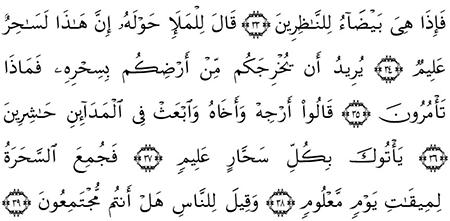 فَإِذَا هِىَ بَيْضَآءُ لِلنَّـٰظِرِينَ ﴿٣٣﴾ قَالَ لِلْمَلَإِ حَوْلَهُۥٓ إِنَّ هَـٰذَا لَسَـٰحِرٌ
عَلِيمٌ ﴿٣٤﴾ يُرِيدُ أَن يُخْرِجَكُم مِّنْ أَرْضِكُم بِسِحْرِهِۦ فَمَاذَا
تَأْمُرُونَ ﴿٣٥﴾ قَالُوٓا۟ أَرْجِهْ وَأَخَاهُ وَٱبْعَثْ فِى ٱلْمَدَآئِنِ حَـٰشِرِينَ
﴿٣٦﴾ يَأْتُوكَ بِكُلِّ سَحَّارٍ عَلِيمٍ ﴿٣٧﴾ فَجُمِعَ ٱلسَّحَرَةُ
لِمِيقَـٰتِ يَوْمٍ مَّعْلُومٍ ﴿٣٨﴾ وَقِيلَ لِلنَّاسِ هَلْ أَنتُم مُّجْتَمِعُونَ ﴿٣٩﴾